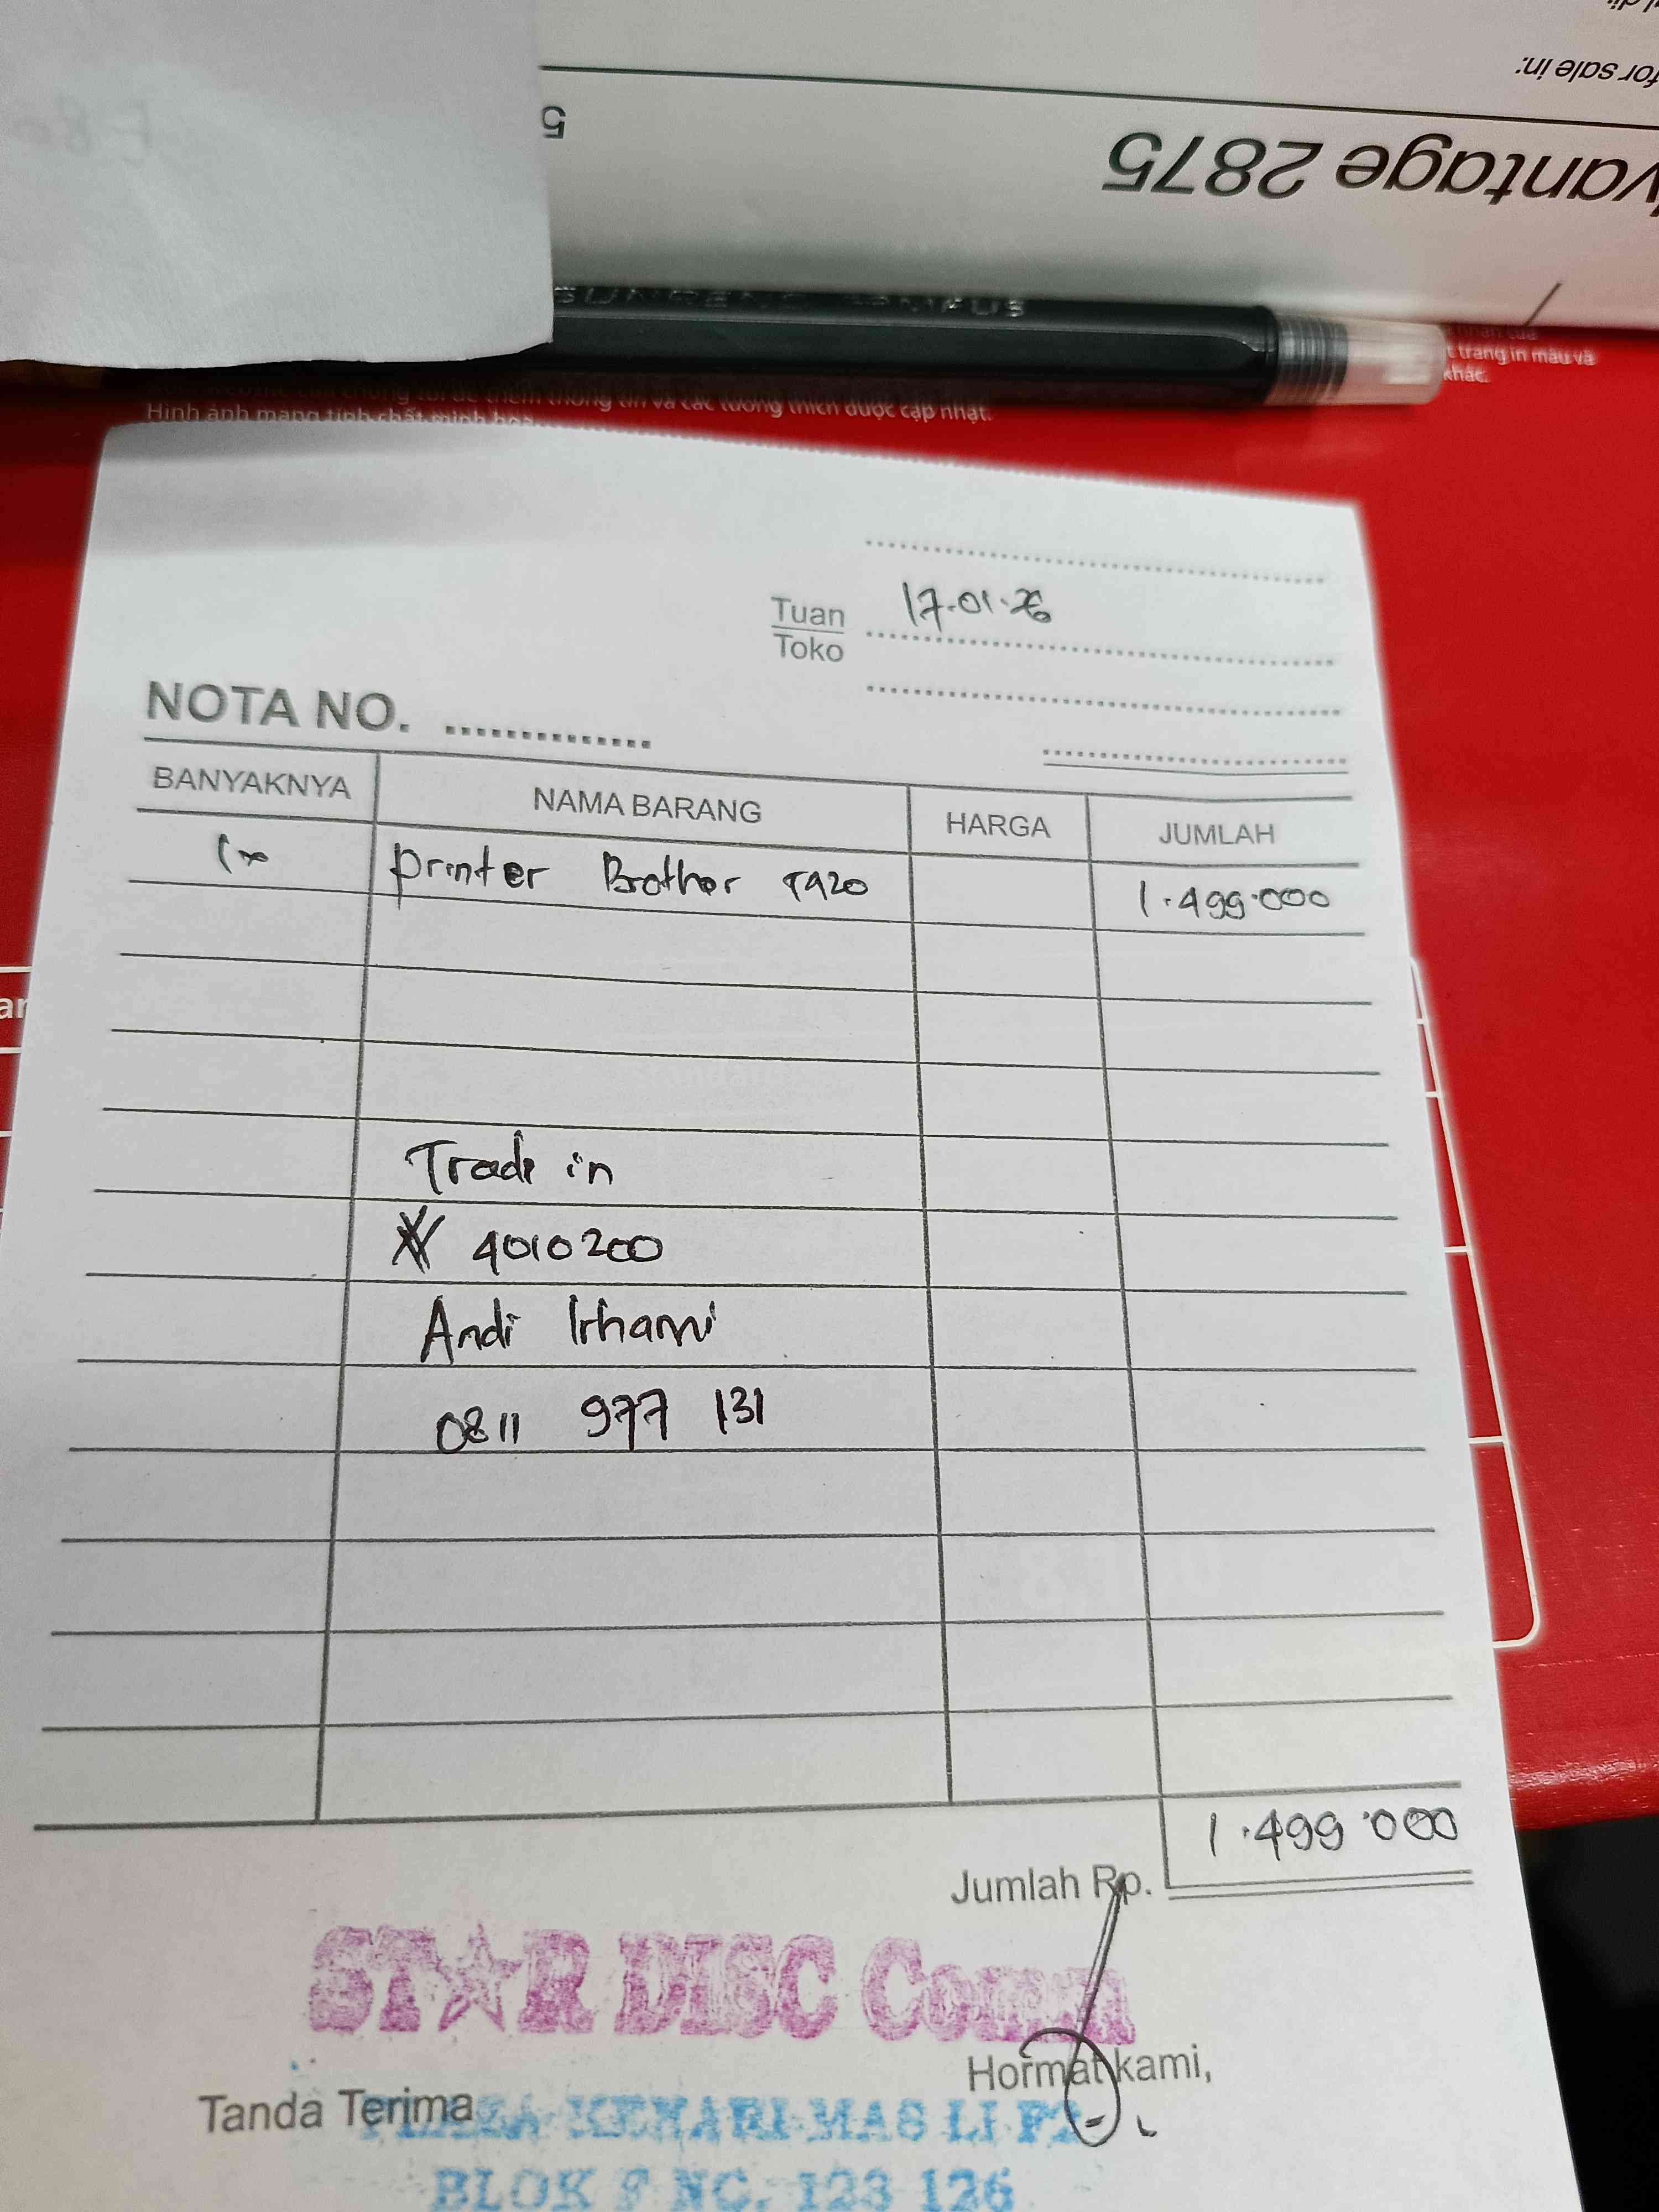 for sale in:
vantage 2875
5
t trang in màu và
khác.
thêm thông tin và các tương thích được cập nhật.
Hình ảnh mang tính chất minh họa.
17-01-26
Tuan
Toko
NOTA NO.
BANYAKNYA NAMA BARANG HARGA JUMLAH
1x printer Brother T920 1.499.000
Trade in
4010200
Andi Irhami
0811 977 131
1.499.000
Jumlah Rp.
STAR DISC Comm
Hormat kami,
Tanda Terima
PLAZA KENARI MAS LT F2
BLOK F NO. 123 126